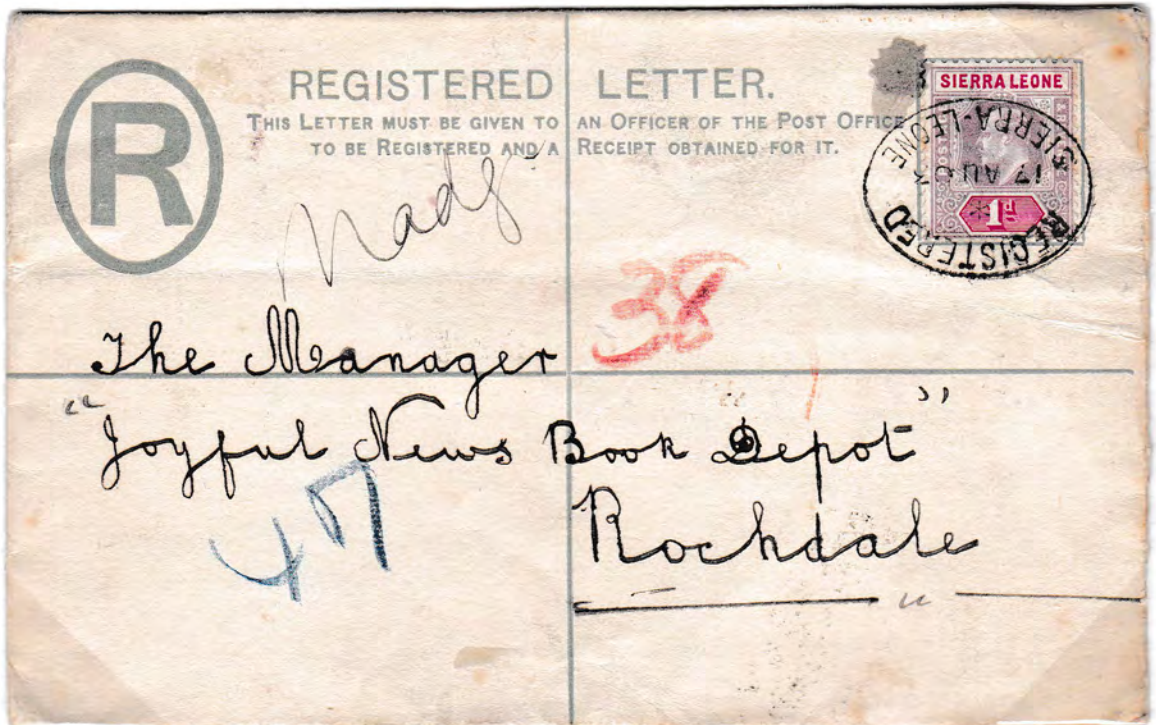 REGISTERED LETTER.
THIS LETTER MUST BE GIVEN TO AN OFFICER OF THE POST OFFICE
TO BE REGISTERED AND A RECEIPT OBTAINED FOR IT.
R
SIERRA LEONE
POSTAGE
1d
REGISTERED
17 AU 03
SIERRA-LEONE
38
The Manager
"Joyful News Book Depot"
47
Rochdale